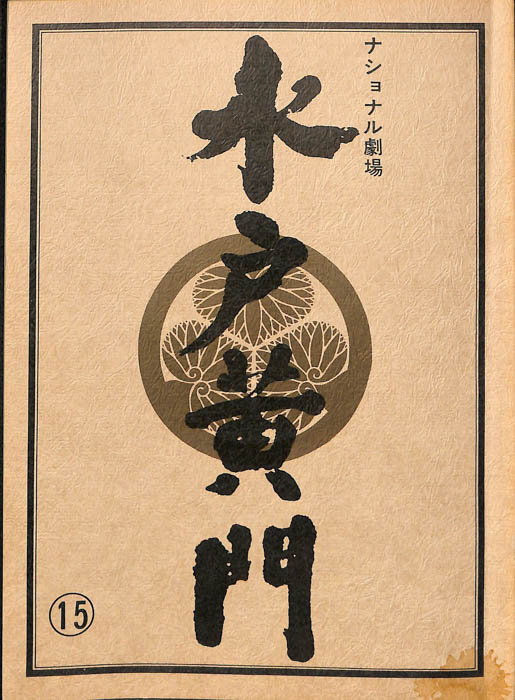 ナショナル劇場
水戸黄門
⑮